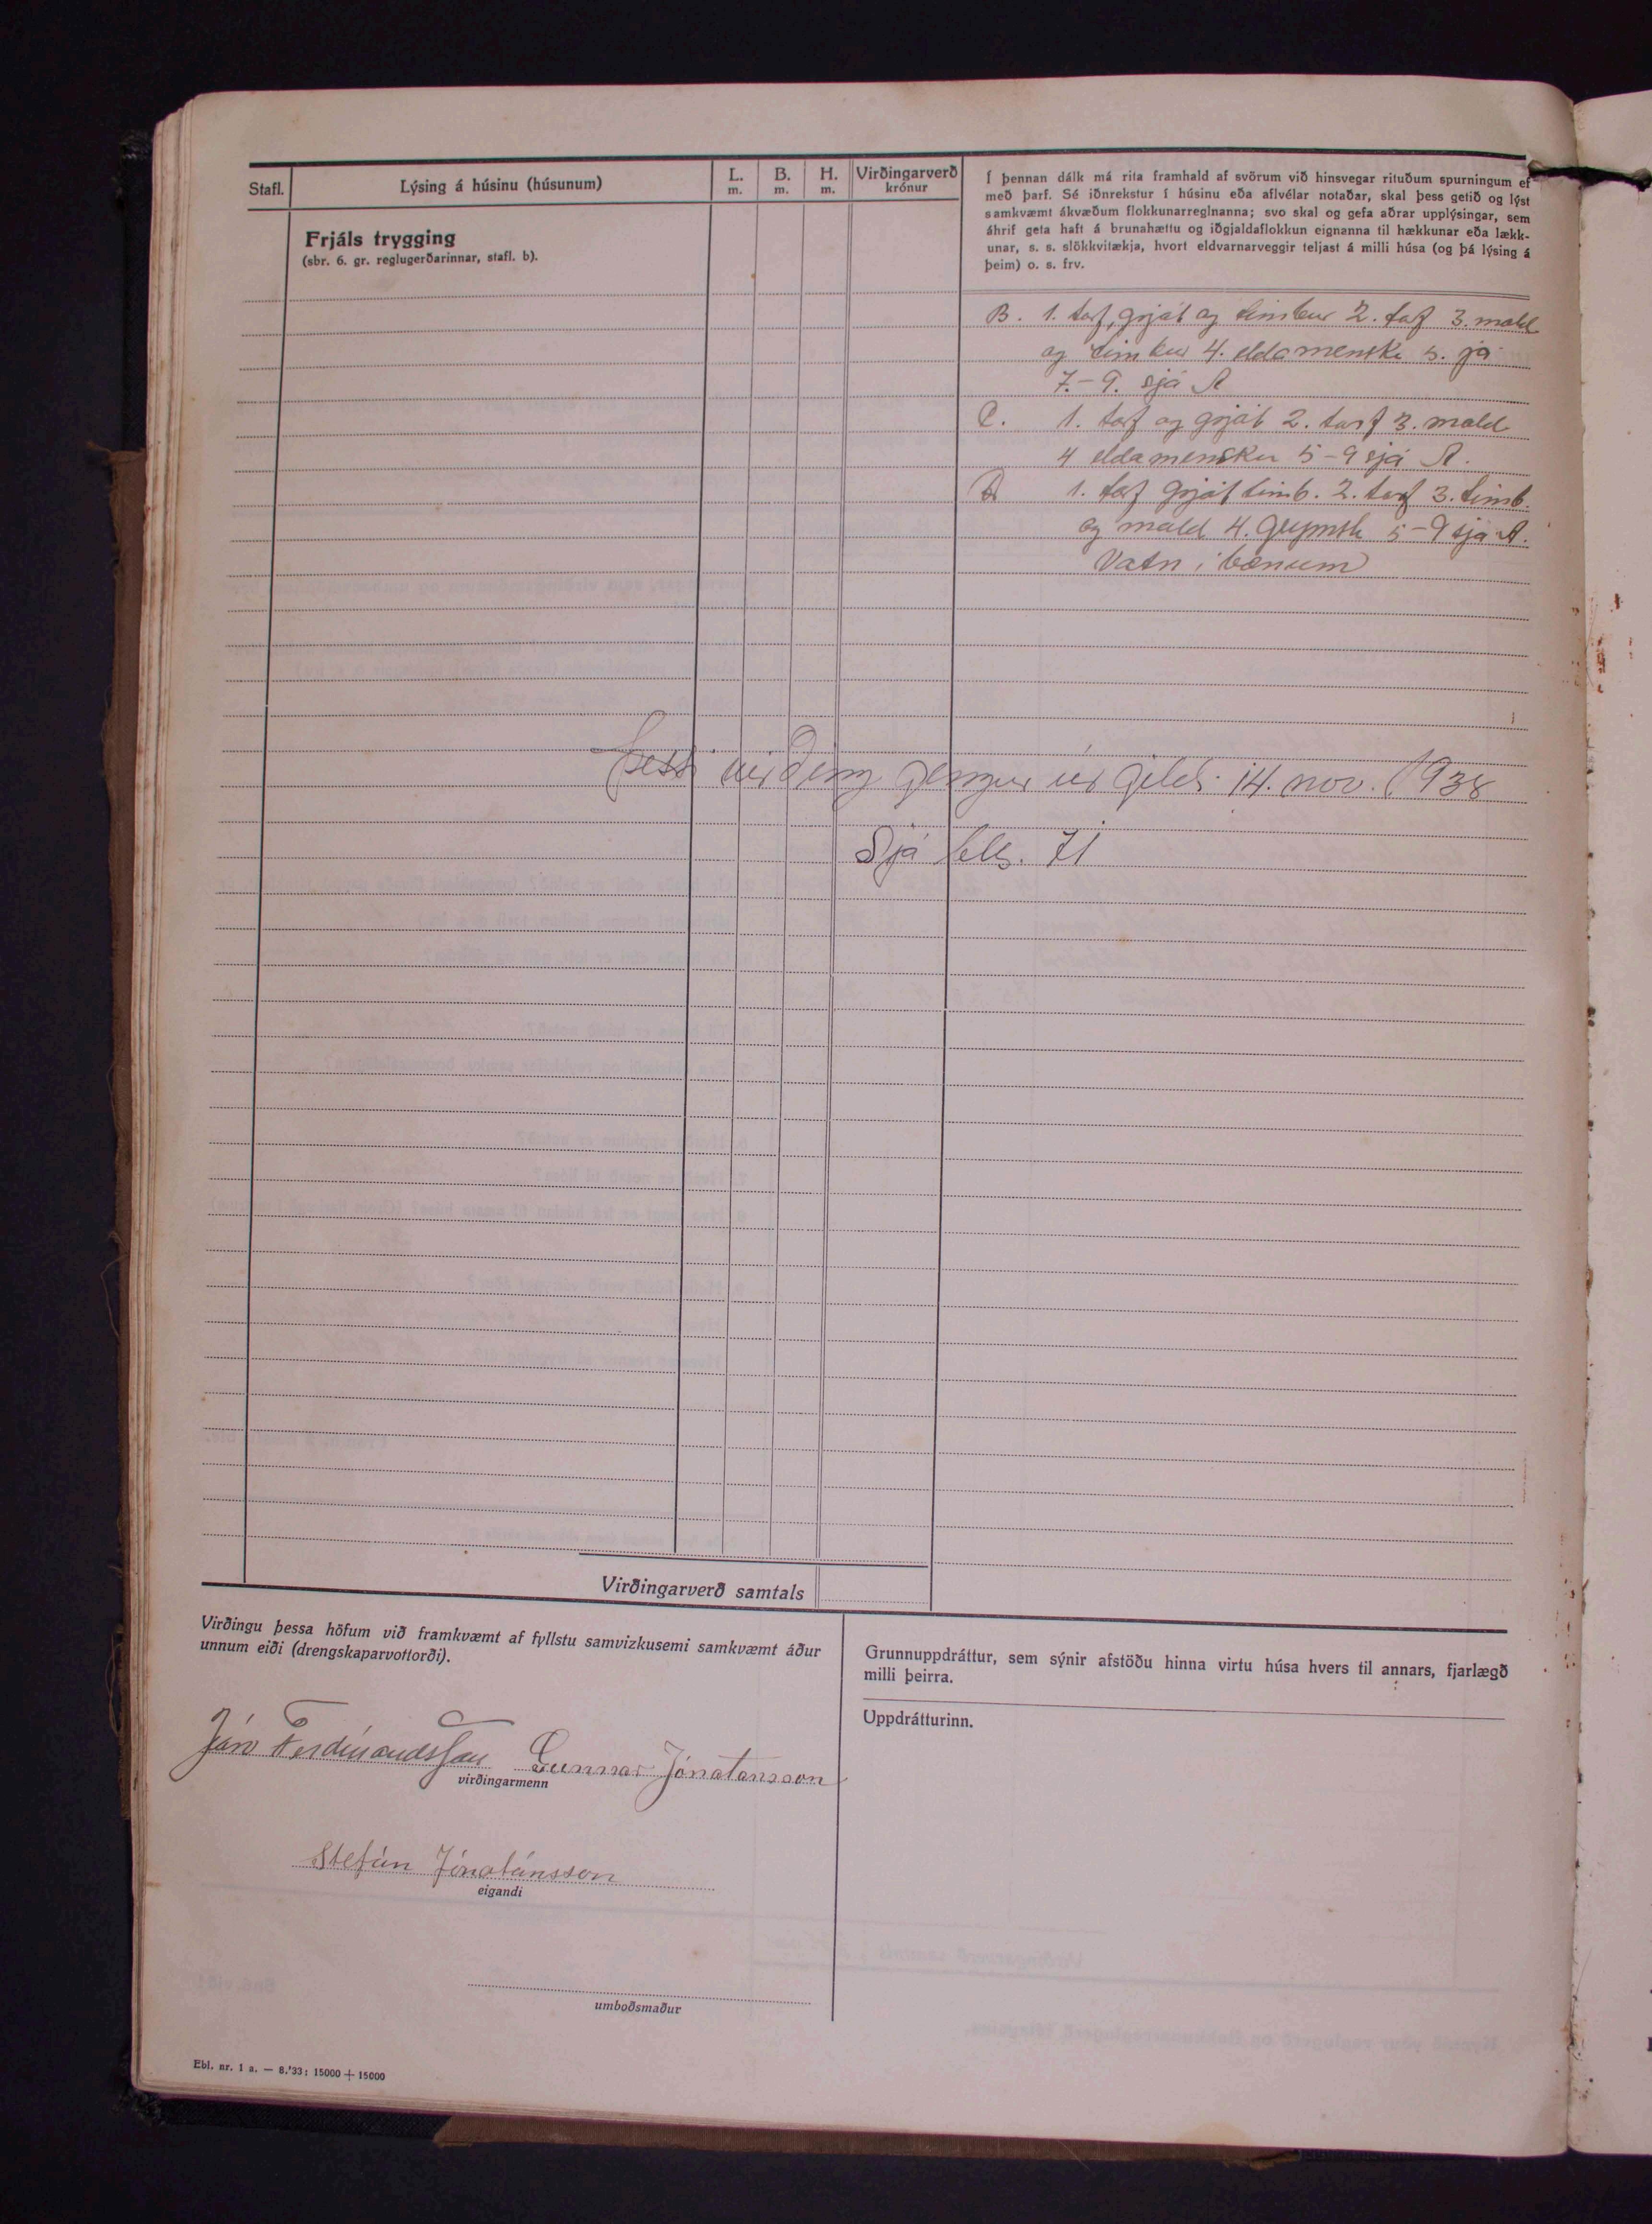 Stafl.
Lýsing á húsinu (húsunum)
L.
m.
B.
m.
H.
m.
Virðingarverð
krónur
Frjáls trygging
(sbr. 6. gr. reglugerðarinnar, stafl. b).
Í þennan dálk má rita framhald af svörum við hinsvegar rituðum spurningum ef
með þarf. Sé iðnrekstur í húsinu eða aflvélar notaðar, skal þess getið og lýst
samkvæmt ákvæðum flokkunarreglnanna; svo skal og gefa aðrar upplýsingar, sem
áhrif geta haft á brunahættu og iðgjaldaflokkun eignanna til hækkunar eða lækk-
unar, s. s. slökkvitækja, hvort eldvarnarveggir teljast á milli húsa (og þá lýsing á
þeim) o. s. frv.
B. 1. torf, grjót og timbur 2. torf 3. mold
og timbur 4. eldamenska 5. já
7.-9. sjá A
C. 1. torf og grjót 2. torf 3. mold
4 eldamenska 5-9 sjá A.
D 1. torf grjót timb. 2. torf 3. timb.
og mold 4. Geymsla 5-9 sjá A.
Vatn i bænum
Þessi virðing gengur úr gildi 14. nov. 1938
Sjá bls. 71
Virðingarverð samtals
Virðingu þessa höfum við framkvæmt af fyllstu samvizkusemi samkvæmt áður
unnum eiði (drengskaparvottorði).
Jón Ferdinandsson Gunnar Jónatansson
virðingarmenn
Stefán Jónatánsson
eigandi
umboðsmaður
Grunnuppdráttur, sem sýnir afstöðu hinna virtu húsa hvers til annars, fjarlægð
milli þeirra.
Uppdrátturinn.
Ebl. nr. 1 a. — 8.'33: 15000 + 15000